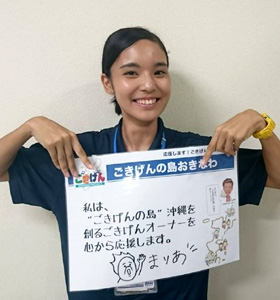 応援します！ごきげ
ごきげん
ごきげんの島おきなわ
私は、
"ごきげんの島"沖縄を
創るごきげんオーナーを
心から応援します。
まりあ